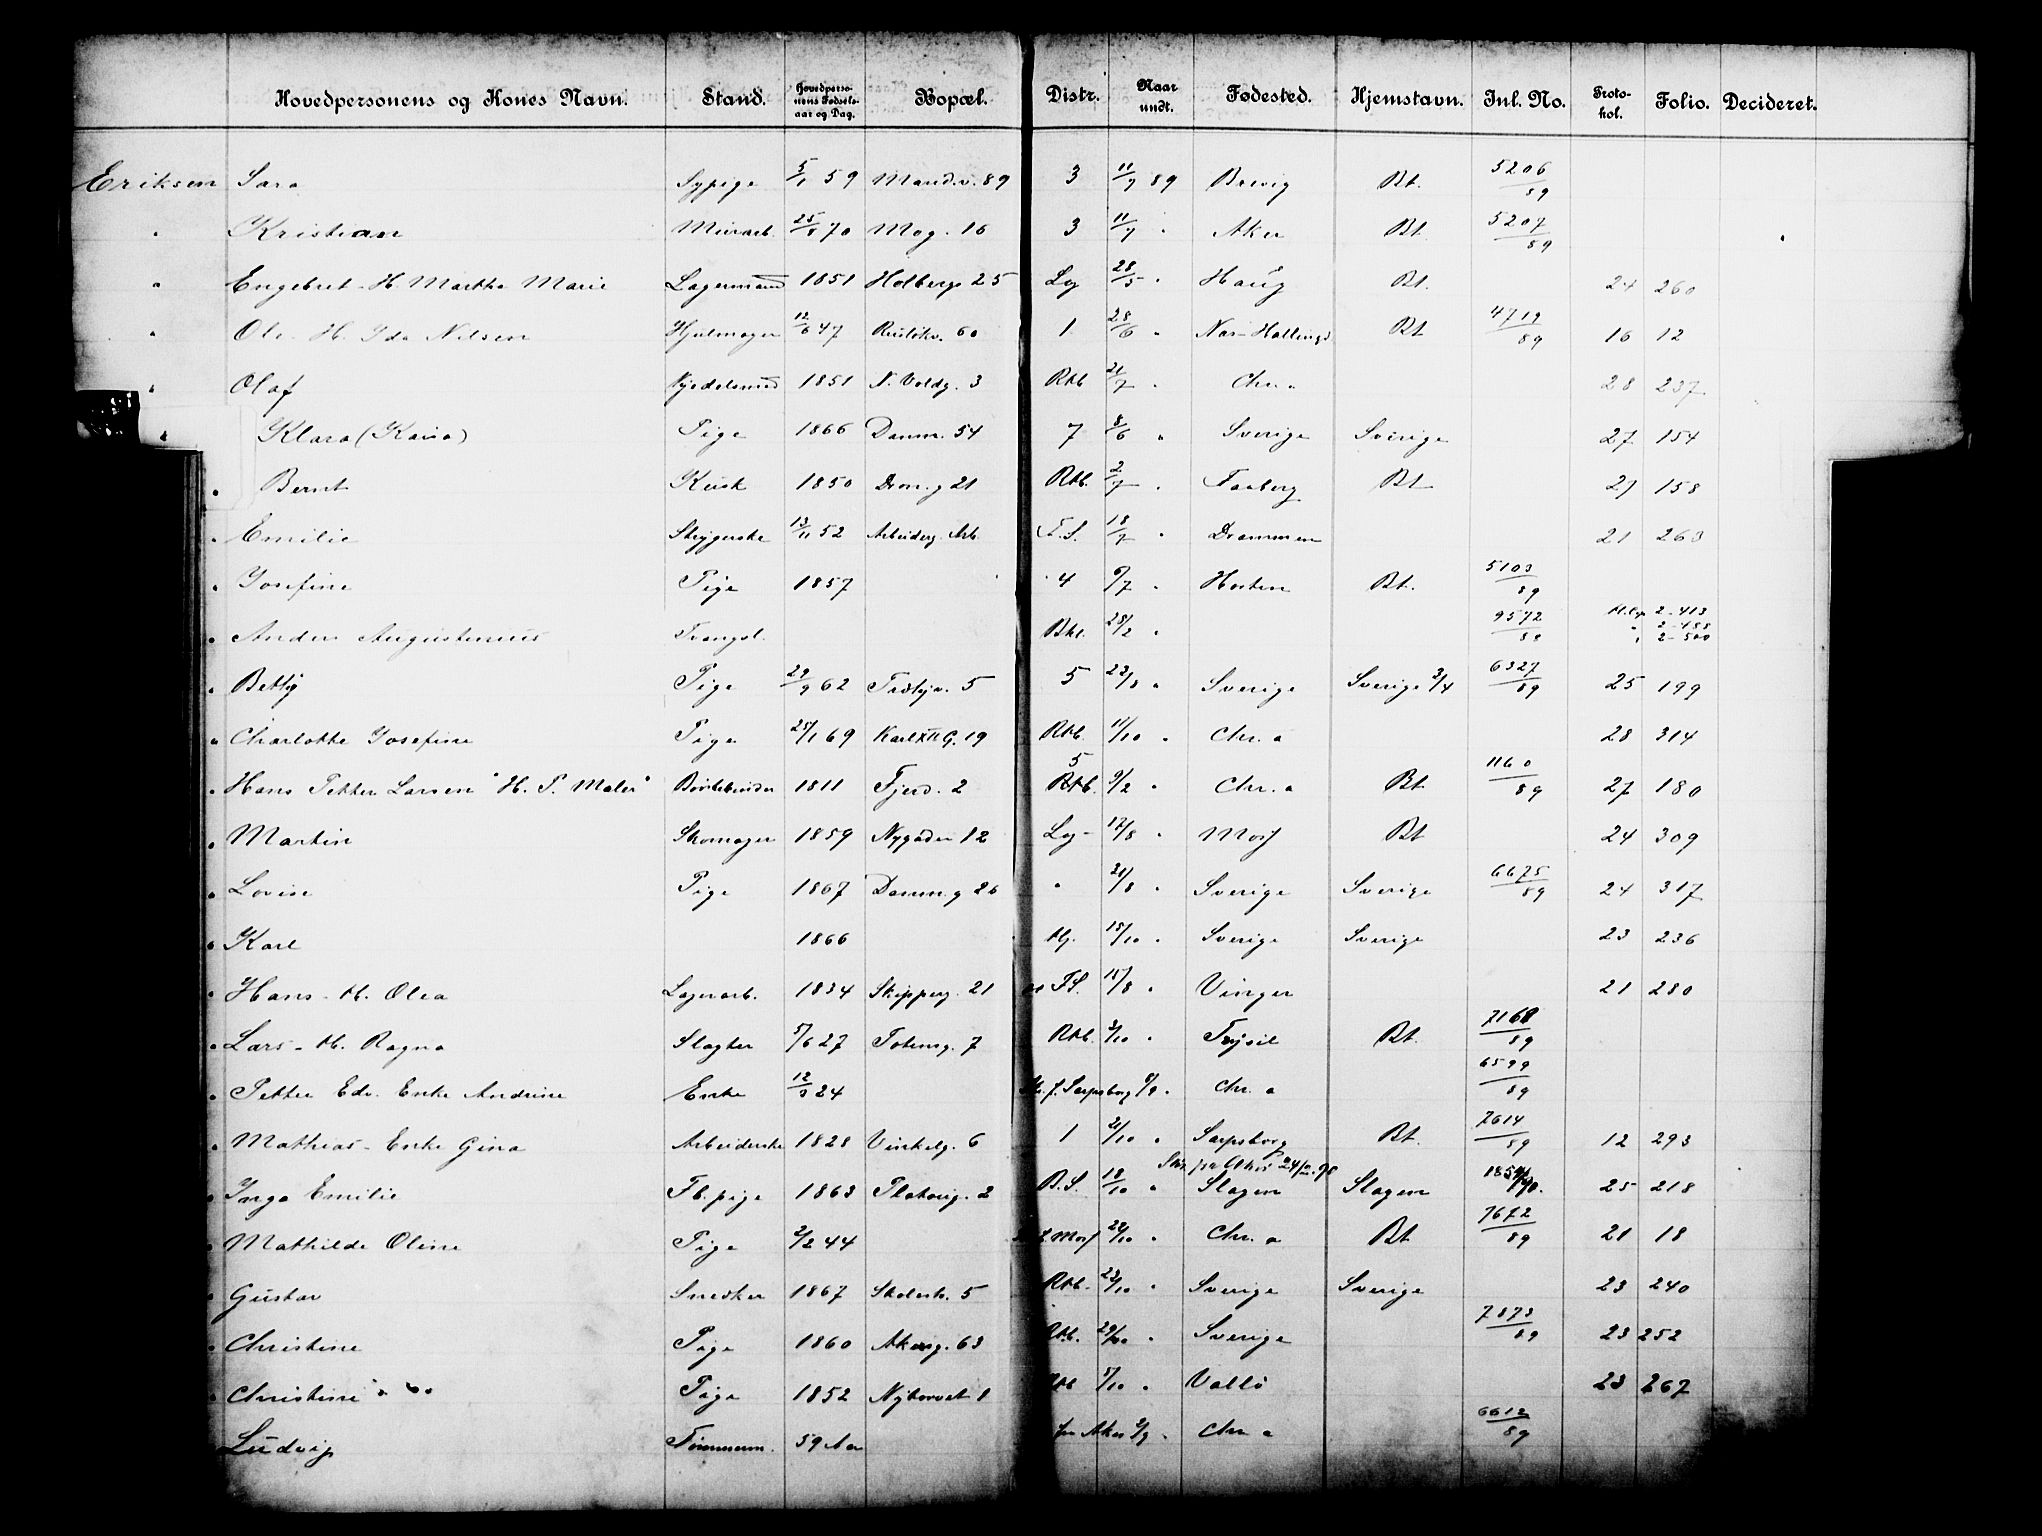 Hovedpersonens og Kones Navn. Stand. Hovedpersonens Fødselsaar og Dag. Bopæl. Distr. Naar undt. Fødested. Hjemstavn. Jnl. No. Protokol. Folio. Decideret.
Eriksen Sara Sypige 5/1 59 Mand.v. 89 3 11/7 89 Brevig Bt. 5206/89
" Kristian Murarb. 25/8 70 Mog. 16 3 11/7 " Aker Bt. 5207/89
" Engebret - H. Marthe Marie Lagermand 1851 Holbergs 25 Lg 28/5 " Haug Bt. 24 260
" Ole. H. Ida Nilsen Hjulmager 12/6 47 Ruseløkv. 60 1 28/6 " Nas-Hallingd Bt 4719/89 16 12
" Olaf Gjedelsmed 1851 N. Voldg. 3 Rtb 21/7 " Chr. a 28 237
" Klara (Kaisa) Pige 1866 Damm. 54 7 8/6 " Sverige Sverige 27 154
" Bernt Kusk 1850 Dron.g 21 Rtb. 2/7 " Faaberg Bt 27 158
" Emilie Strygerske 13/11 52 Arbeiderg. Arb. F.S. 18/7 " Drammen 21 263
" Josefine Pige 1857 4 6/7 " Horten Bt. 5103/89
" Anders Augustinius Trangsl. Bkl. 28/2 " 9572/88 2-413
" 2-488
" 2-500
" Betty Pige 29/9 62 Trætyv. 5 5 22/8 " Sverige Sverige 3/4 6327/89 25 199
" Charlotte Josefine Pige 25/1 69 Karl XII G. 19 Rtb. 11/10 " Chr. a 28 314
" Hans Petter Larsen "H. P. Maler" Børstebinder 1811 Fjerd. 2 5 Rtb. 9/2 " Chr. a Bt. 1160/89 27 180
" Martin Skomager 1859 Nygaden 12 Lg- 17/8 " Moss Bt 24 309
" Lovise Pige 1867 Damm.g 26 " 21/8 " Sverige Sverige 6675/89 24 317
" Karl 1866 15/10 " Sverige Sverige 23 236
" Hans - H. Olea Lagerarb. 1834 Skipperg. 21 FS. 15/8 " Vinger 21 280
" Lars - H. Ragna Slagter 5/6 27 Totensg. 7 Rtb. 3/10 " Trysil Bt. 7168/89
" Petter Edv. Enke Andrine Enke 12/3 24 f. Sarpsborg 6/9 " Chr. a 6599/89
" Mathias - Enke Gina Arbeiderske 1828 Vinkelg. 6 1 21/10 " Sarpsborg Bt. 7614/89 12 293
" Inga Emilie Fb.pige 1863 Platousg. 2 B.S. 18/10 " Slagen Slagen 25 218
" Mathilde Oline Pige 2/2 44 f. Moss 22/10 " Chr. a Bt 7672/89 21 18
" Gustav Snedker 1867 Skolestr. 5 Rtb. 23/10 " Sverige Sverige 23 240
" Christine Pige 1860 Akersg. 63 Rtb. 29/10 " Sverige 7873/89 23 252
" Christine Pige 1852 Nytorvet 1 Rtb 5/10 " Vallø 23 267
Ludvig Tømmerm. 59 Aar fra Aker 2/9 " Chr. a 6612/89